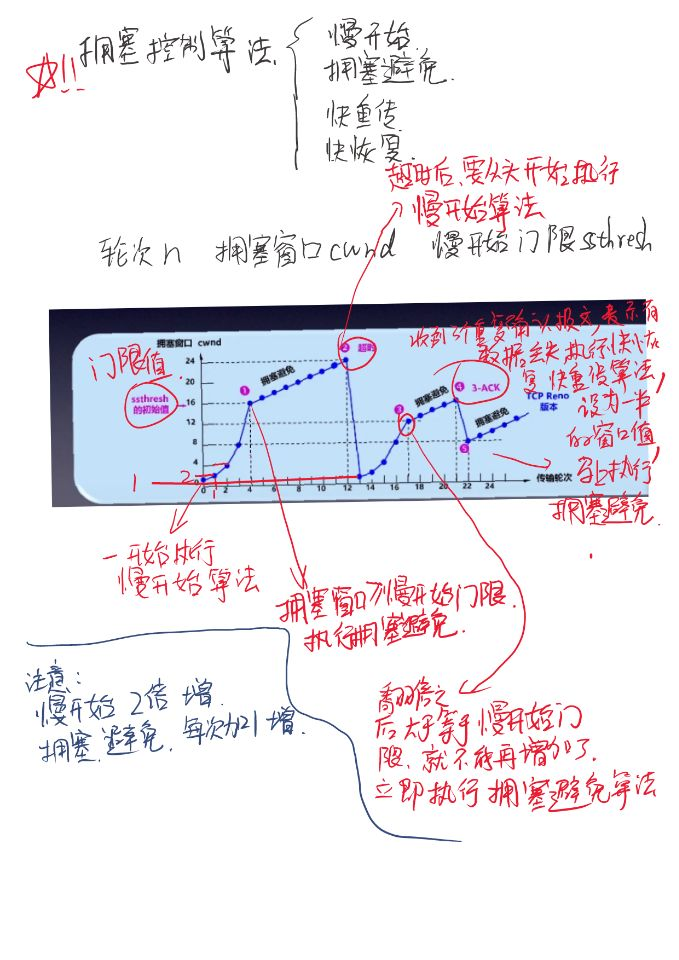 拥塞控制算法
慢开始
拥塞避免
快重传
快恢复
超时后,要从头开始执行
慢开始算法
轮次n 拥塞窗口cwnd 慢开始门限ssthresh
收到3个重复确认报文,表示有
数据丢失执行快恢
复 快重传算法,
设为一半
的窗口值
马上执行,
拥塞避免.
门限值
拥塞窗口 cwnd
24
20
16
12
8
4
0
ssthresh
的初始值
① 拥塞避免
② 超时
③ 拥塞避免
④ 3-ACK
⑤ 拥塞避免
TCP Reno
版本
1
2
1
0 2 4 6 8 10 12 14 16 18 20 22 24
传输轮次
一开始执行
慢开始算法
拥塞窗口≥慢开始门限.
执行拥塞避免.
翻倍之
后大于等于慢开始门
限,就不能再增加了.
立即执行拥塞避免算法
注意:
慢开始 2倍增.
拥塞避免,每次加1增.